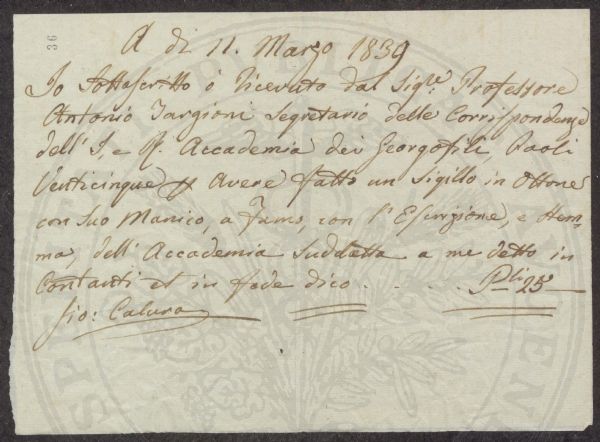 36
A di 11. Marzo 1839
Io Sottoscritto ò Ricevuto dal Sigre. Professore
Antonio Targioni Segretario delle Corrispondenze
dell' I. e R. Accademia dei Georgofili, Paoli
Venticinque p Avere fatto un Sigillo in Ottone
con Suo Manico, a Tamo, con l'Escrizione, e Stem-
ma, dell' Accademia Suddetta a me detto in
Contanti et in fede dico . . . . . Pli 25
Gio: Calura